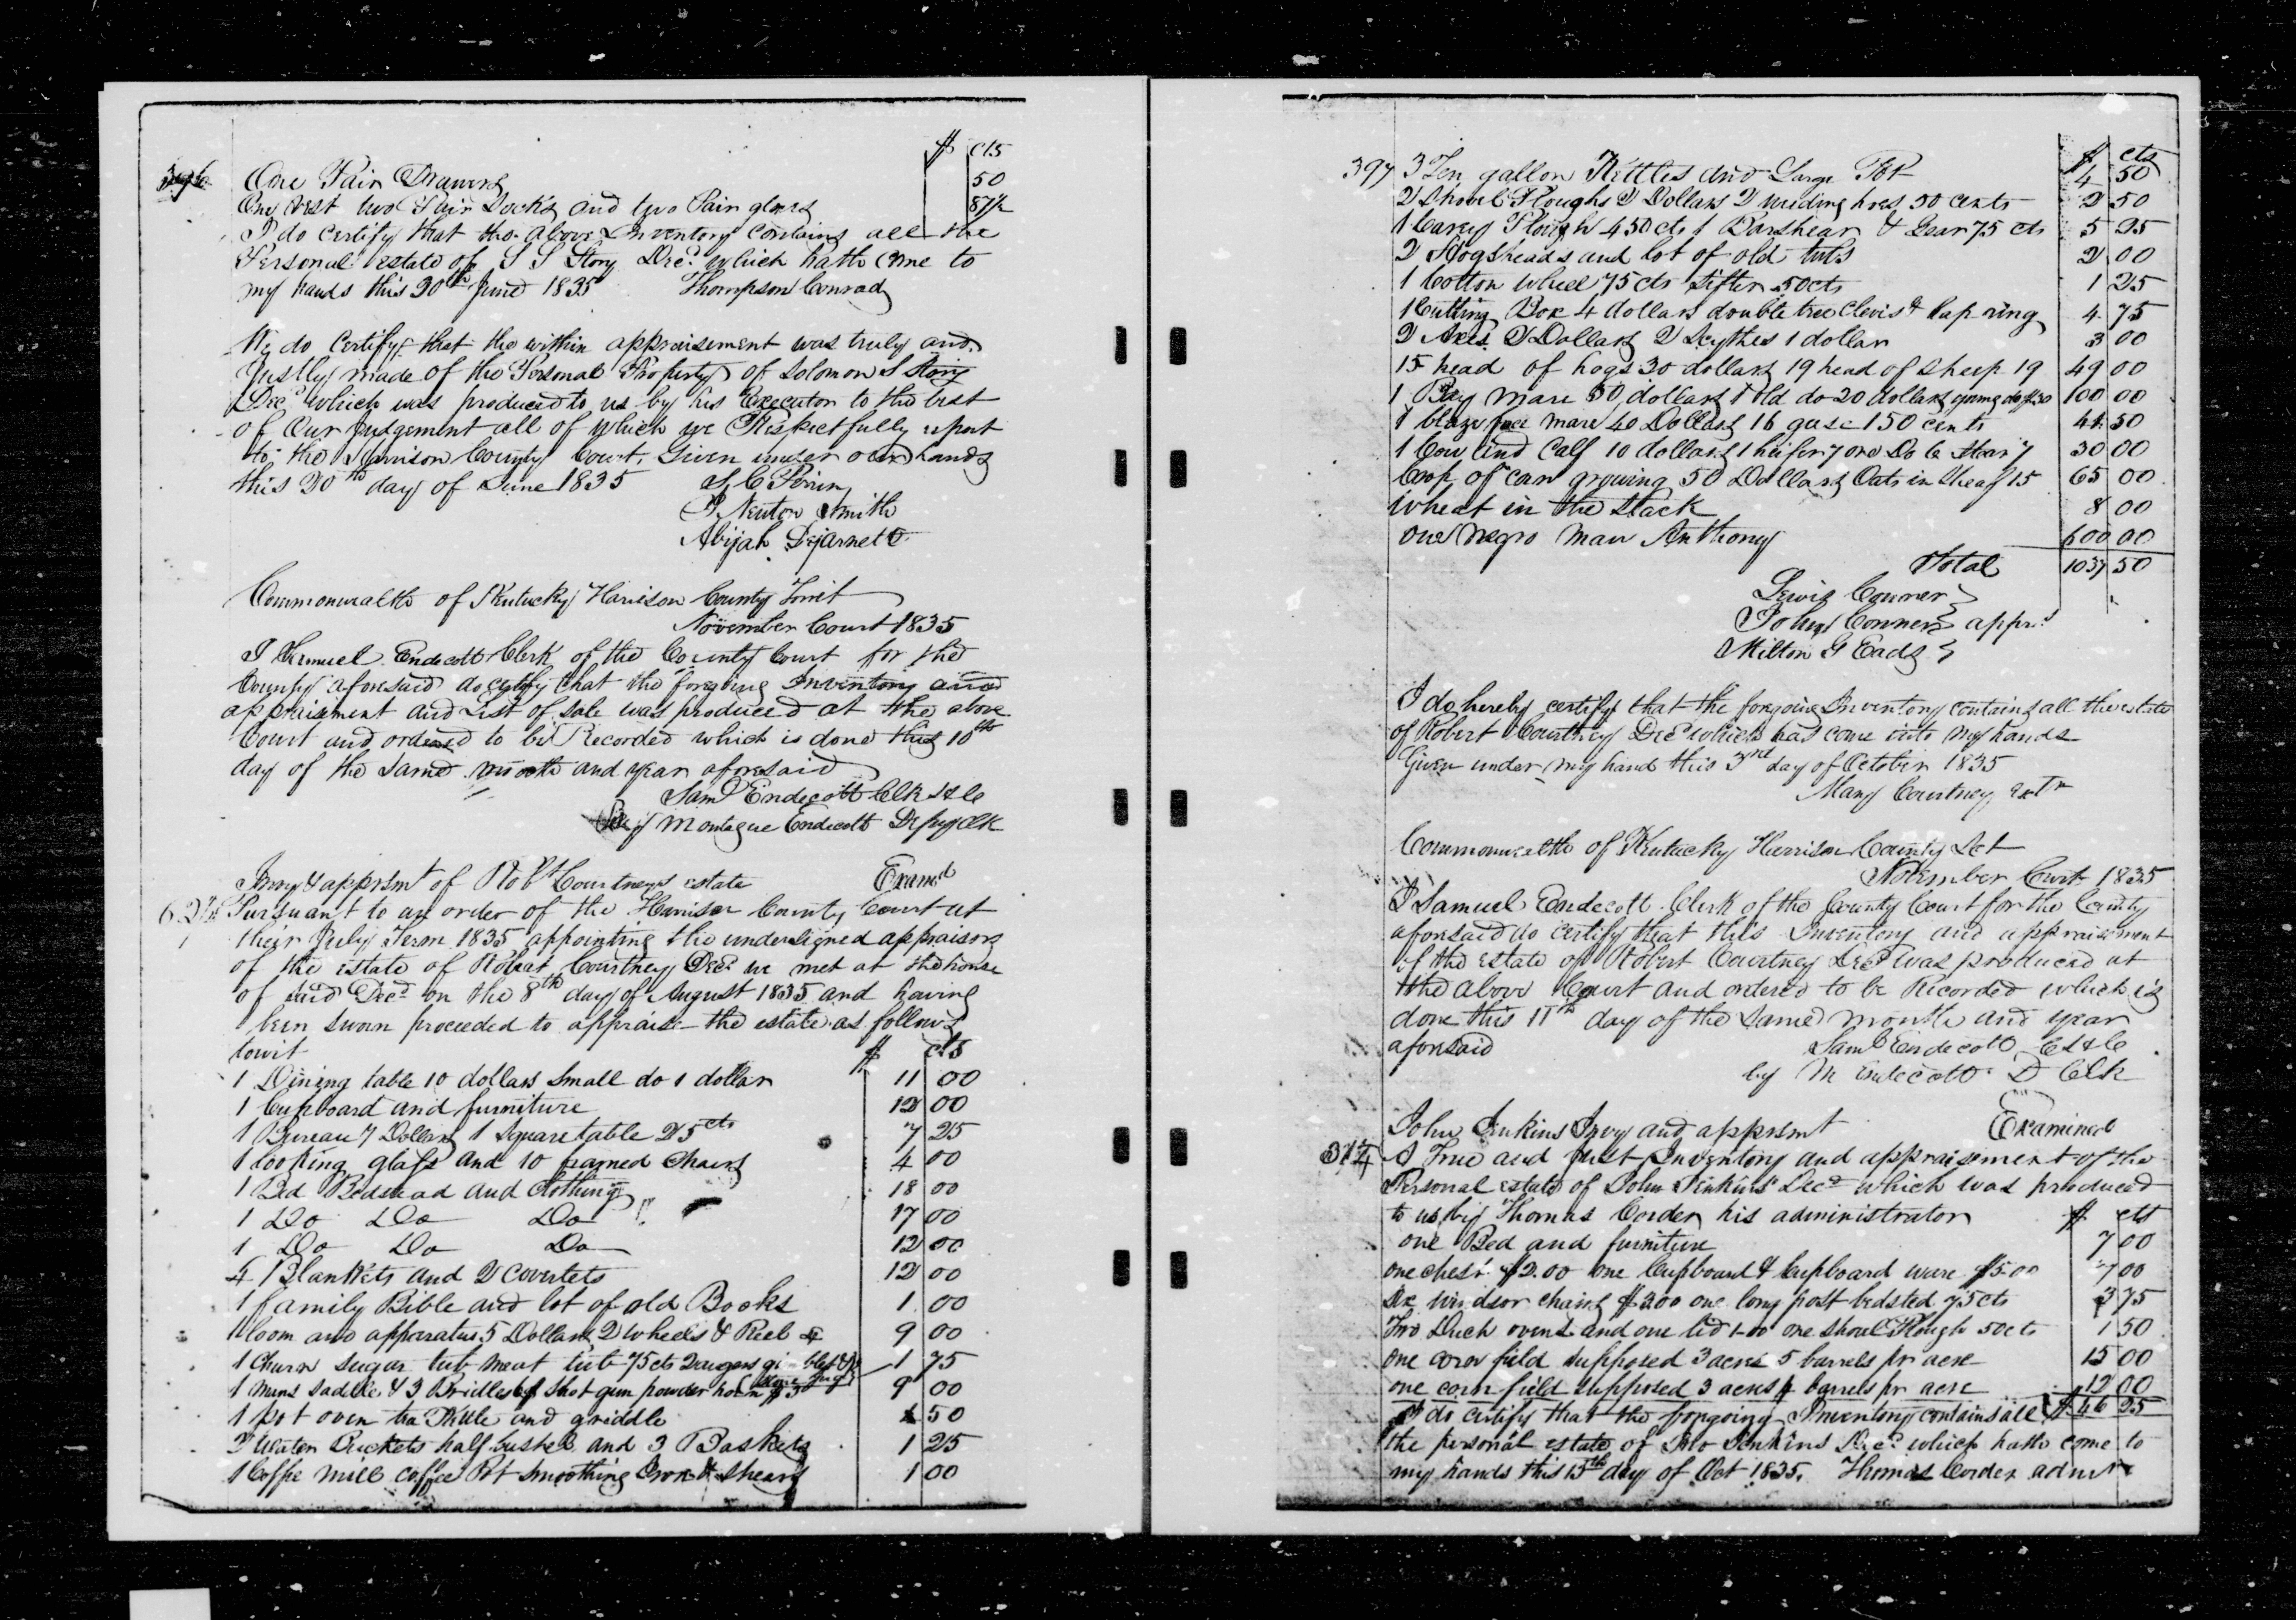 $ cts
396 One Pair Drawers 50
One vest two Pair Socks and two Pair gloves 87½
I do certify that the above Inventory contains all the
Personal estate of S S Story Decd which hath come to
my hands this 20th June 1835 Thompson Conrad
We do Certify that the within appraisement was truly and
Justly made of the Personal Property of Solomon S Story
Decd which was produced to us by his Executor to the best
of Our Judgement all of which we Respectfully report
to the Harrison County Court. Given under our hands
this 20th day of June 1835 A C Perrin
P Newton Smith
Abijah Dejarnett
Commonwealth of Kentucky Harrison County Towit
November Court 1835
I Samuel Endecott Clerk of the County Court for the
County aforesaid do certify that the forgoing Inventory and
appraisment and List of sale was produced at the above
Court and ordered to be Recorded which is done this 10th
day of the same month and year aforesaid
Saml Endecott Clk H C
By Montague Endecott Depy Clk
Invy & apprsmt of Robt Courtneys estate Examd
Pursuant to an order of the Harrison County Court at
their July Term 1835 appointing the undersigned appraisors
of the estate of Robert Courtney Decd we met at the house
of said Decd on the 8th day of August 1835 and having
been sworn proceeded to appraise the estate as follows
towit $ cts
1 Dining table 10 dollars small do 1 dollar 11 00
1 Cupboard and furniture 12 00
1 Bureau 7 Dollars 1 Square table 25 cts 7 25
1 looking glass and 10 framed Chairs 4 00
1 Bed Bedstead and Clothing 18 00
1 Do Do Do 17 00
1 Do Do Do 12 00
4 Blankets and 2 Coverlets 12 00
1 family Bible and lot of old Books 1 00
1 loom and apparatus 5 Dollars 2 Wheels & Reel 4 9 00
1 Churn sugar tub meat tub 75 cts 2 augers gimblet & stone Jug 1 75
1 mans saddle & 3 Bridles 6$ shot gun powder horn $3 9 00
1 pot oven tea Kittle and griddle 50
2 Water Buckets half bushel and 3 Baskets 1 25
1 Coffee mill coffee Pot Smoothing Iron & shears 1 00
$ cts
397 3 Ten gallon Kettles and Large Pot 4 50
2 Shovel Ploughs 2 Dollars 2 weeding hoes 50 cents 2 50
1 Carey Plough 4 50 cts 1 Barshear & Gear 75 cts 5 25
2 Hogsheads and lot of old tubs 2 00
1 Cotton wheel 75 cts sifter 50 cts 1 25
1 Cutting Box 4 dollars double tree Clevis & lap ring 4 75
2 Axes 2 Dollars 2 Scythes 1 dollar 3 00
15 head of hogs 30 dollars 19 head of sheep 19 49 00
1 Bay mare 50 dollars 1 old do 20 dollars young do $30 100 00
1 blaze face mare 40 Dollars 16 geese 150 cents 41 50
1 Cow and Calf 10 dollars 1 heifer 7 one Do 6 Steer 7 30 00
Crop of corn growing 50 Dollars Oats in sheaf 15 65 00
Wheat in the Stack 8 00
one negro man Anthony 600 00
Total 1037 50
Lewis Conner
John Conner apprs
Milton G Eads
I do hereby certify that the foregoing Inventory contains all the estate
of Robert Courtney Decd which has come into my hands
Given under my hand this 3rd day of October 1835
Mary Courtney extr
Commonwealth of Kentucky Harrison County Sct
November Court 1835
I Samuel Endecott Clerk of the County Court for the County
aforesaid do certify that this Inventory and appraisement
of the estate of Robert Courtney Decd was produced at
the above Court and ordered to be Recorded which is
done this 11th day of the same month and year
aforesaid Saml Endecott C H C
by M Endecott D Clk
John Jenkins Invy and apprsmt Examined
A True and Just Inventory and appraisement of the
Personal estate of John Jenkins Decd which was produced
to us by Thomas Corder his administrator $ cts
one Bed and furniture 7 00
one chest $2.00 one Cupboard & Cupboard ware $5.00 7 00
Six windsor chairs $3.00 one long post bedsted 75 cts 3 75
Two Duch ovens and one lid 1.00 one shovel Plough 50 cts 1 50
one corn field supposed 3 acres 5 barrels pr acre 15 00
one corn field supposed 3 acres 4 barrels pr acre 12 00
I do certify that the forgoing Inventory contains all $46 25
the personal estate of Jno Jenkins Decd which hath come to
my hands this 15th day of Oct 1835. Thomas Corder admr